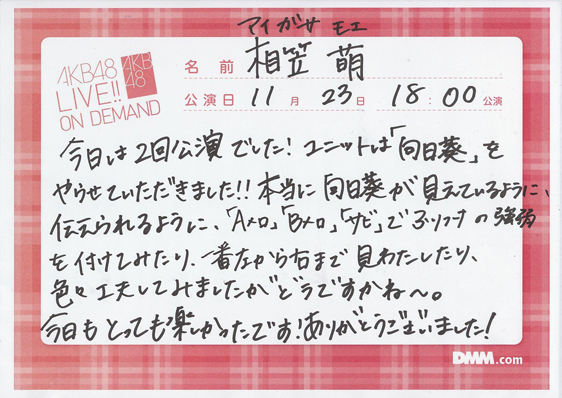 マイガサ モエ
AKB48
LIVE!!
ON DEMAND
AKB
48
名前 相笠 萌
公演日 11月 23日 18:00公演
今日は2回公演でした!ユニットは「向日葵」を
やらせていただきました!!本当に向日葵が見えているように、
伝えられるように、「Aメロ」「Bメロ」「サビ」で ふりつけの強弱
を付けてみたり、一番左から右まで見わたしたり、
色々工夫してみましたがどうですかね〜。
今日もとっても楽しかったです!ありがとうございました!
DMM.com